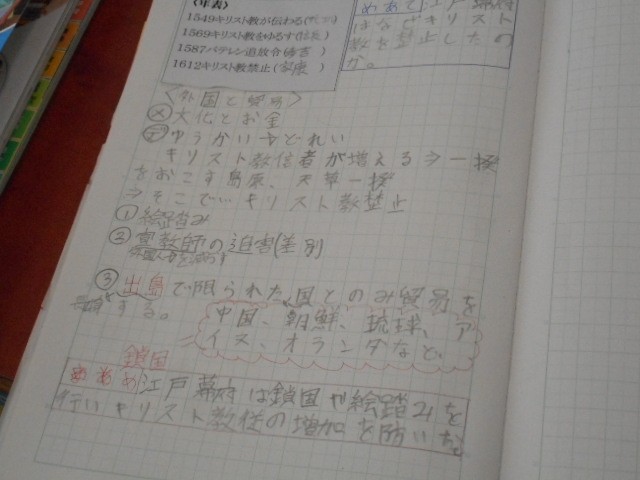 〈年表〉
1549キリスト教が伝わる(
1569キリスト教をゆるす(信長)
1587バテレン追放令(秀吉)
1612キリスト教禁止(家康)
めあて江戸幕府
はなぜキリスト
教を禁止したの
か。
〈外国と貿易〉
メ文化とお金
デゆうかい→どれい
キリスト教信者が増える⇒一揆
をおこす島原、天草一揆
⇒そこで…キリスト教禁止
①絵踏み
②宣教師の迫害(差別
③出島で限られた国とのみ貿易を
する。
中国、朝鮮、琉球、ア
イヌ、オランダなど
鎖国
まとめ江戸幕府は鎖国や絵踏みを
行いキリスト教徒の増加を防いだ